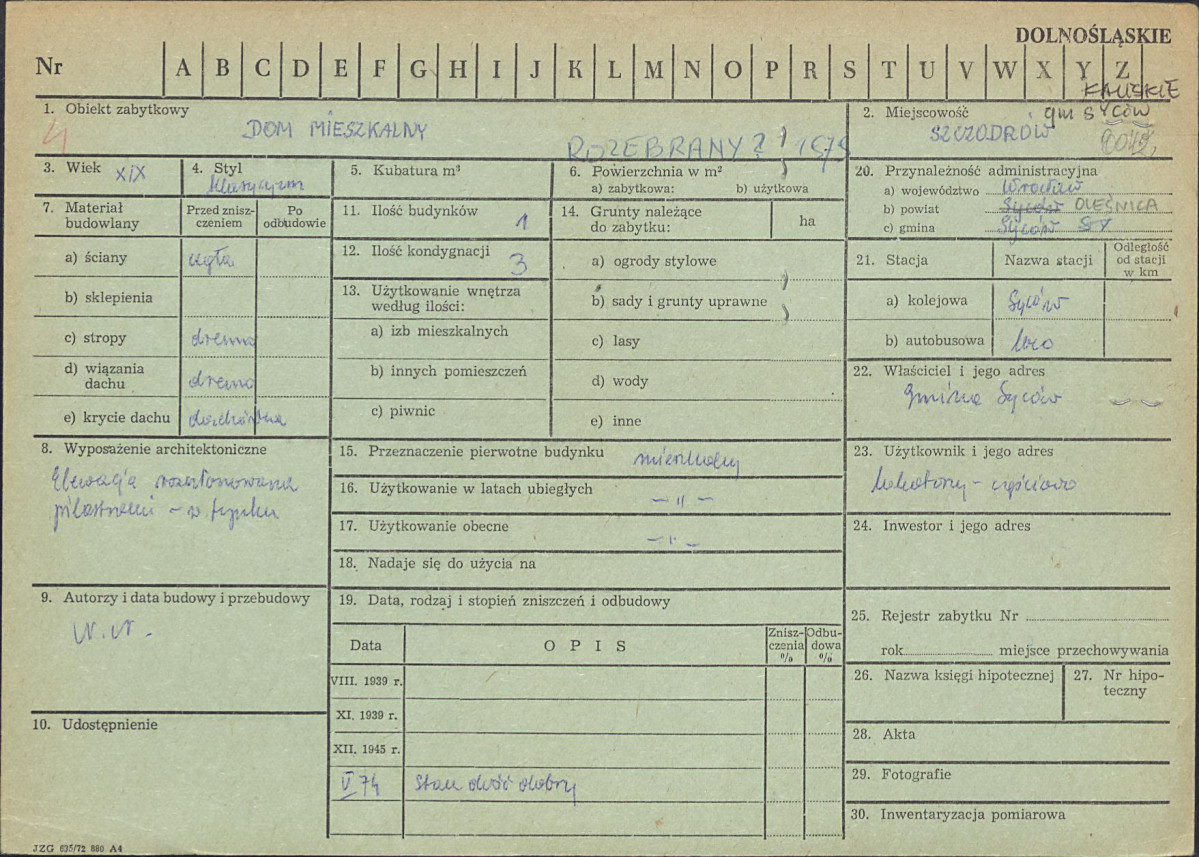 DOLNOŚLĄSKIE
Nr A B C D E F G H I J K L M N O P R S T U V W X Y Z
KALISKIE
1. Obiekt zabytkowy
4
DOM MIESZKALNY
ROZEBRANY ? 1979
2. Miejscowość gm SYCÓW
SZCZODRÓW
3. Wiek XIX
4. Styl
klasycyzm
5. Kubatura m³
6. Powierzchnia w m²
a) zabytkowa: b) użytkowa
7. Materiał budowlany
Przed zniszczeniem
Po odbudowie
a) ściany cegła
b) sklepienia
c) stropy drewno
d) wiązania dachu drewno
e) krycie dachu dachówka
8. Wyposażenie architektoniczne
Elewacja rozczłonowana
pilastrami – w tynku
9. Autorzy i data budowy i przebudowy
N.N.
10. Udostępnienie
11. Ilość budynków 1
12. Ilość kondygnacji 3
13. Użytkowanie wnętrza
według ilości:
a) izb mieszkalnych
b) innych pomieszczeń
c) piwnic
14. Grunty należące
do zabytku:
ha
a) ogrody stylowe
b) sady i grunty uprawne
c) lasy
d) wody
e) inne
15. Przeznaczenie pierwotne budynku mieszkalny
16. Użytkowanie w latach ubiegłych
– " –
17. Użytkowanie obecne
– " –
18. Nadaje się do użycia na
19. Data, rodzaj i stopień zniszczeń i odbudowy
Data
O P I S
Zniszczenia %
Odbudowa %
VIII. 1939 r.
XI. 1939 r.
XII. 1945 r.
V 74 Stan dość dobry
20. Przynależność administracyjna
a) województwo Wrocław
b) powiat Syców OLEŚNICA
c) gmina Syców
21. Stacja
Nazwa stacji
Odległość od stacji w km
a) kolejowa Syców
b) autobusowa loco
22. Właściciel i jego adres
Gmina Syców
23. Użytkownik i jego adres
lokatorzy – częściowo
24. Inwestor i jego adres
25. Rejestr zabytku Nr
rok miejsce przechowywania
26. Nazwa księgi hipotecznej
27. Nr hipoteczny
28. Akta
29. Fotografie
30. Inwentaryzacja pomiarowa
JZG 635/72 880 A4